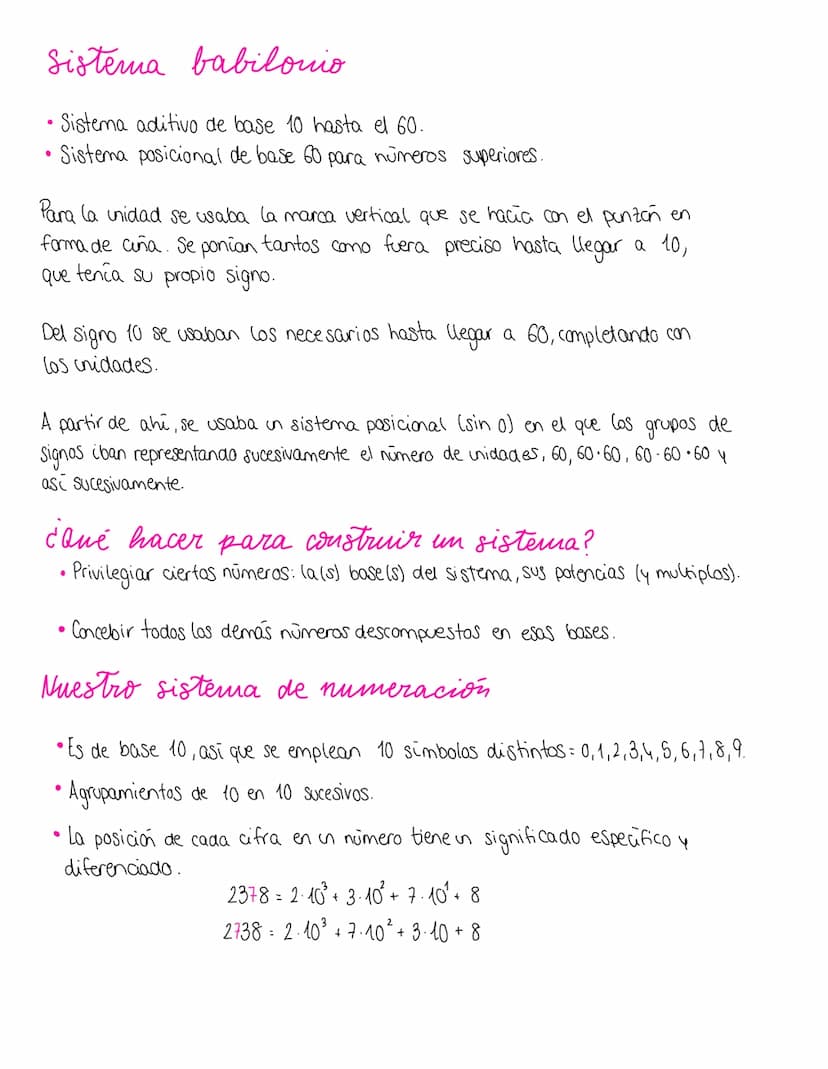 Sistema babilonio
• Sistema aditivo de base 10 hasta el 60.
• Sistema posicional de base 60 para números superiores.
Para la unidad se usaba la marca vertical que se hacía con el punzón en
forma de cuña. Se ponían tantos como fuera preciso hasta llegar a 10,
que tenía su propio signo.
Del signo 10 se usaban los necesarios hasta llegar a 60, completando con
los unidades.
A partir de ahí, se usaba un sistema posicional (sin 0) en el que los grupos de
signos iban representando sucesivamente el número de unidades, 60, 60·60, 60·60·60 y
así sucesivamente.
¿Qué hacer para construir un sistema?
• Privilegiar ciertos números: la(s) base(s) del sistema, sus potencias (y multiplos).
• Concebir todos los demás números descompuestos en esas bases.
Nuestro sistema de numeración
• Es de base 10, así que se emplean 10 símbolos distintos = 0,1,2,3,4,5,6,7,8,9.
• Agrupamientos de 10 en 10 sucesivos.
• La posición de cada cifra en un número tiene un significado específico y
diferenciado.
2378 = 2·10³ + 3·10² + 7·10¹ + 8
2738 = 2·10³ + 7·10² + 3·10 + 8